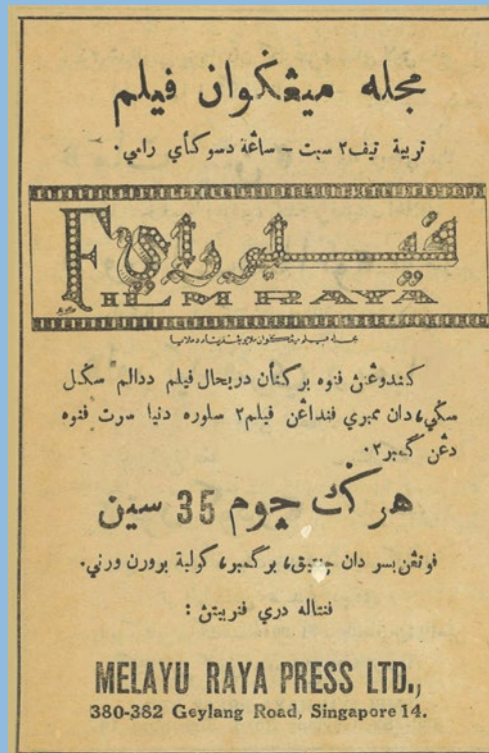 مجله ميڠݢوان فيلم
تربية تيف٢ سبت – ساڠة دسوكاٴي رامي.
فيلم راي
FILEM RAYA
كندوڠنڽ فنوه بركناٴن دربحال فيلم ددالم سݢل
سݢي، دان ممبري فنداڠن فيلم٢ سلوره دنيا سرت فنوه
دڠن ݢمبر٢.
هرݢ چوم 35 سين
فوتڠن بسر دان چنتيق، برݢمبر، كولية برورن ورني.
فنتاله دري فنربيتڽ :
MELAYU RAYA PRESS LTD.,
380-382 Geylang Road, Singapore 14.